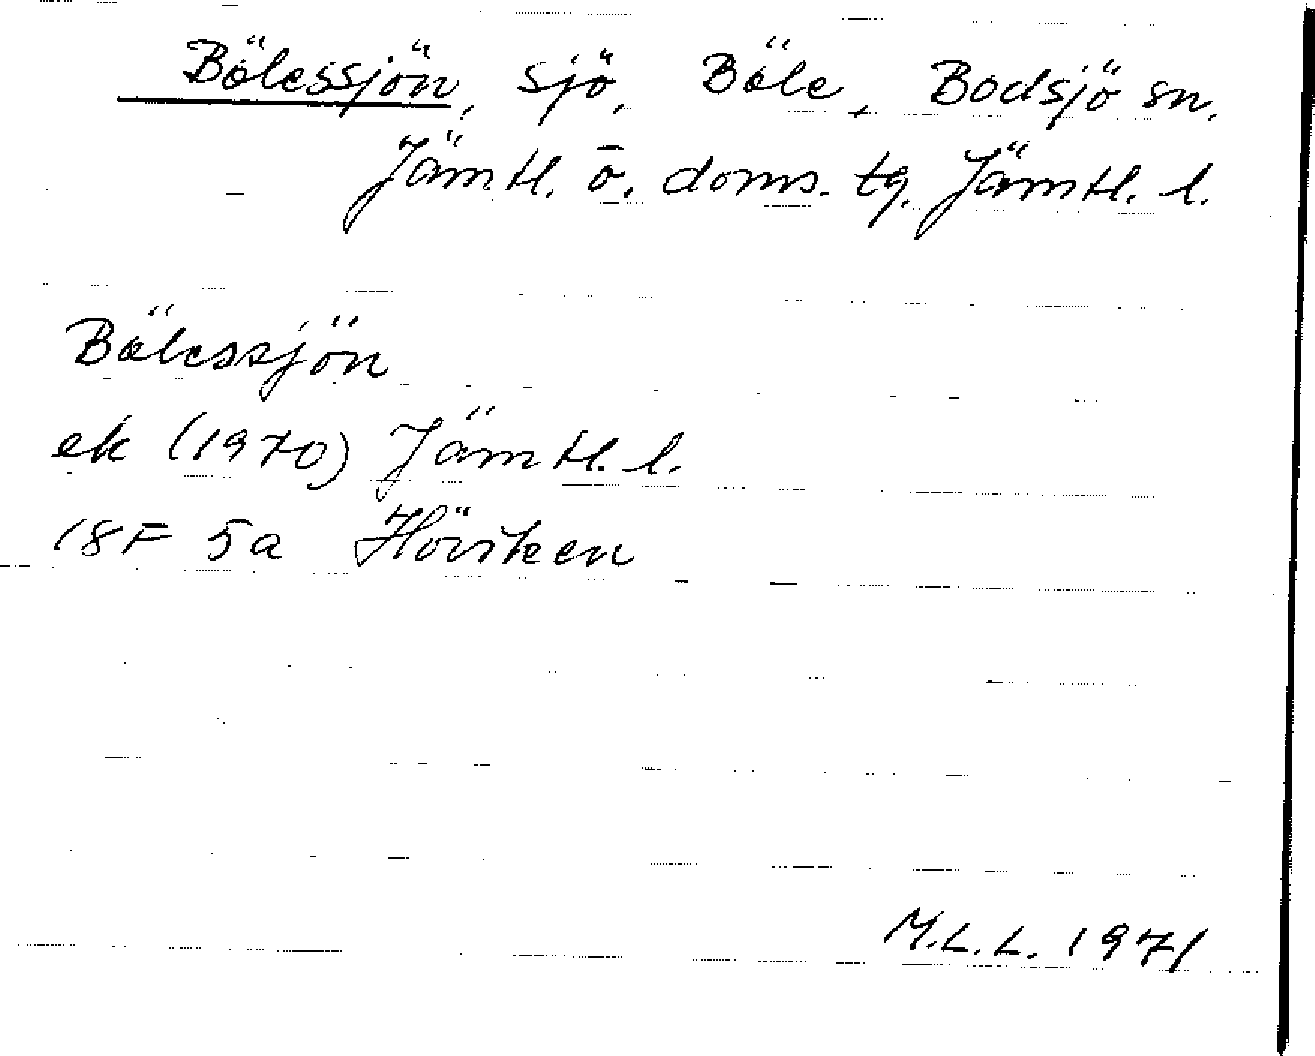 Bölessjön, sjö, Böle, Bodsjö sn,
Jämtl. ö. doms. tg. Jämtl. l.
Bölessjön
ek (1970) Jämtl. l.
18F 5a Hövsteen
M.L.L. 1971